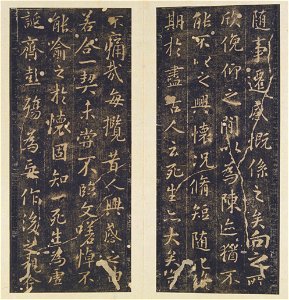 隨事遷感慨係之矣向之所
欣俛仰之閒以為陳迹猶不
能不以之興懷況脩短隨化終
期於盡古人云死生亦大矣豈
不痛哉每攬昔人興感之由
若合一契未嘗不臨文嗟悼不
能喻之於懷固知一死生為虛
誕齊彭殤為妄作後之視